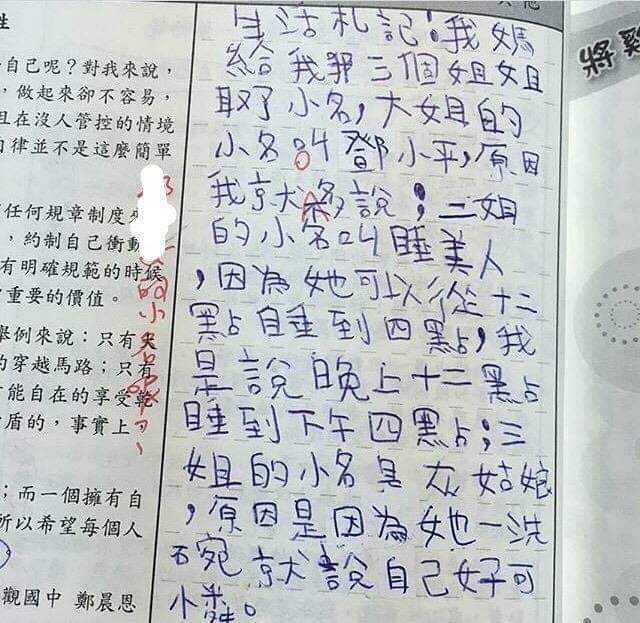 性
自己呢？對我來說，
，做起來卻不容易，
且在沒人管控的情境
自律並不是這麼簡單
任何規章制度
，約制自己衝動
有明確規範的時候
重要的價值。
舉例來說：只有
的穿越馬路；只有
能自在的享受乾
盾的，事實上，
；而一個擁有自
所以希望每個人
觀國中 鄭晨恩
生活札記：我媽
給我那三個姐姐
取了小名，大姐的
小名叫鄧小平，原因
我就不多說；二姐
的小名叫睡美人
，因為她可以從十二
點睡到四點，我
是說晚上十二點
睡到下午四點；三
姐的小名是灰姑娘
，原因是因為她一洗
碗就說自己好可
憐。
將